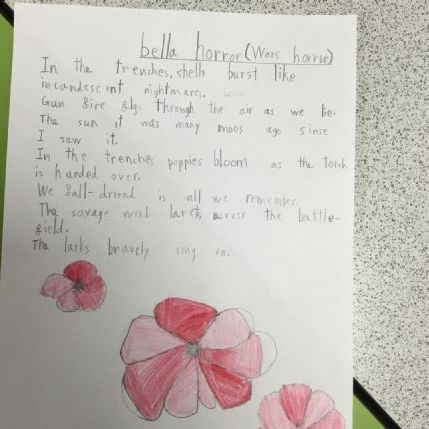 bella horror (Wars horror)
In the trenches, shells burst like
incandescent nightmares.
Gun fire through the air as we lie.
The sun it was many moos ago sinse
I saw it.
In the trenches, poppies bloom as the torch
is handed over.
We is all we remember.
The savage wind across the battle-
field.
The larks bravely sing on.